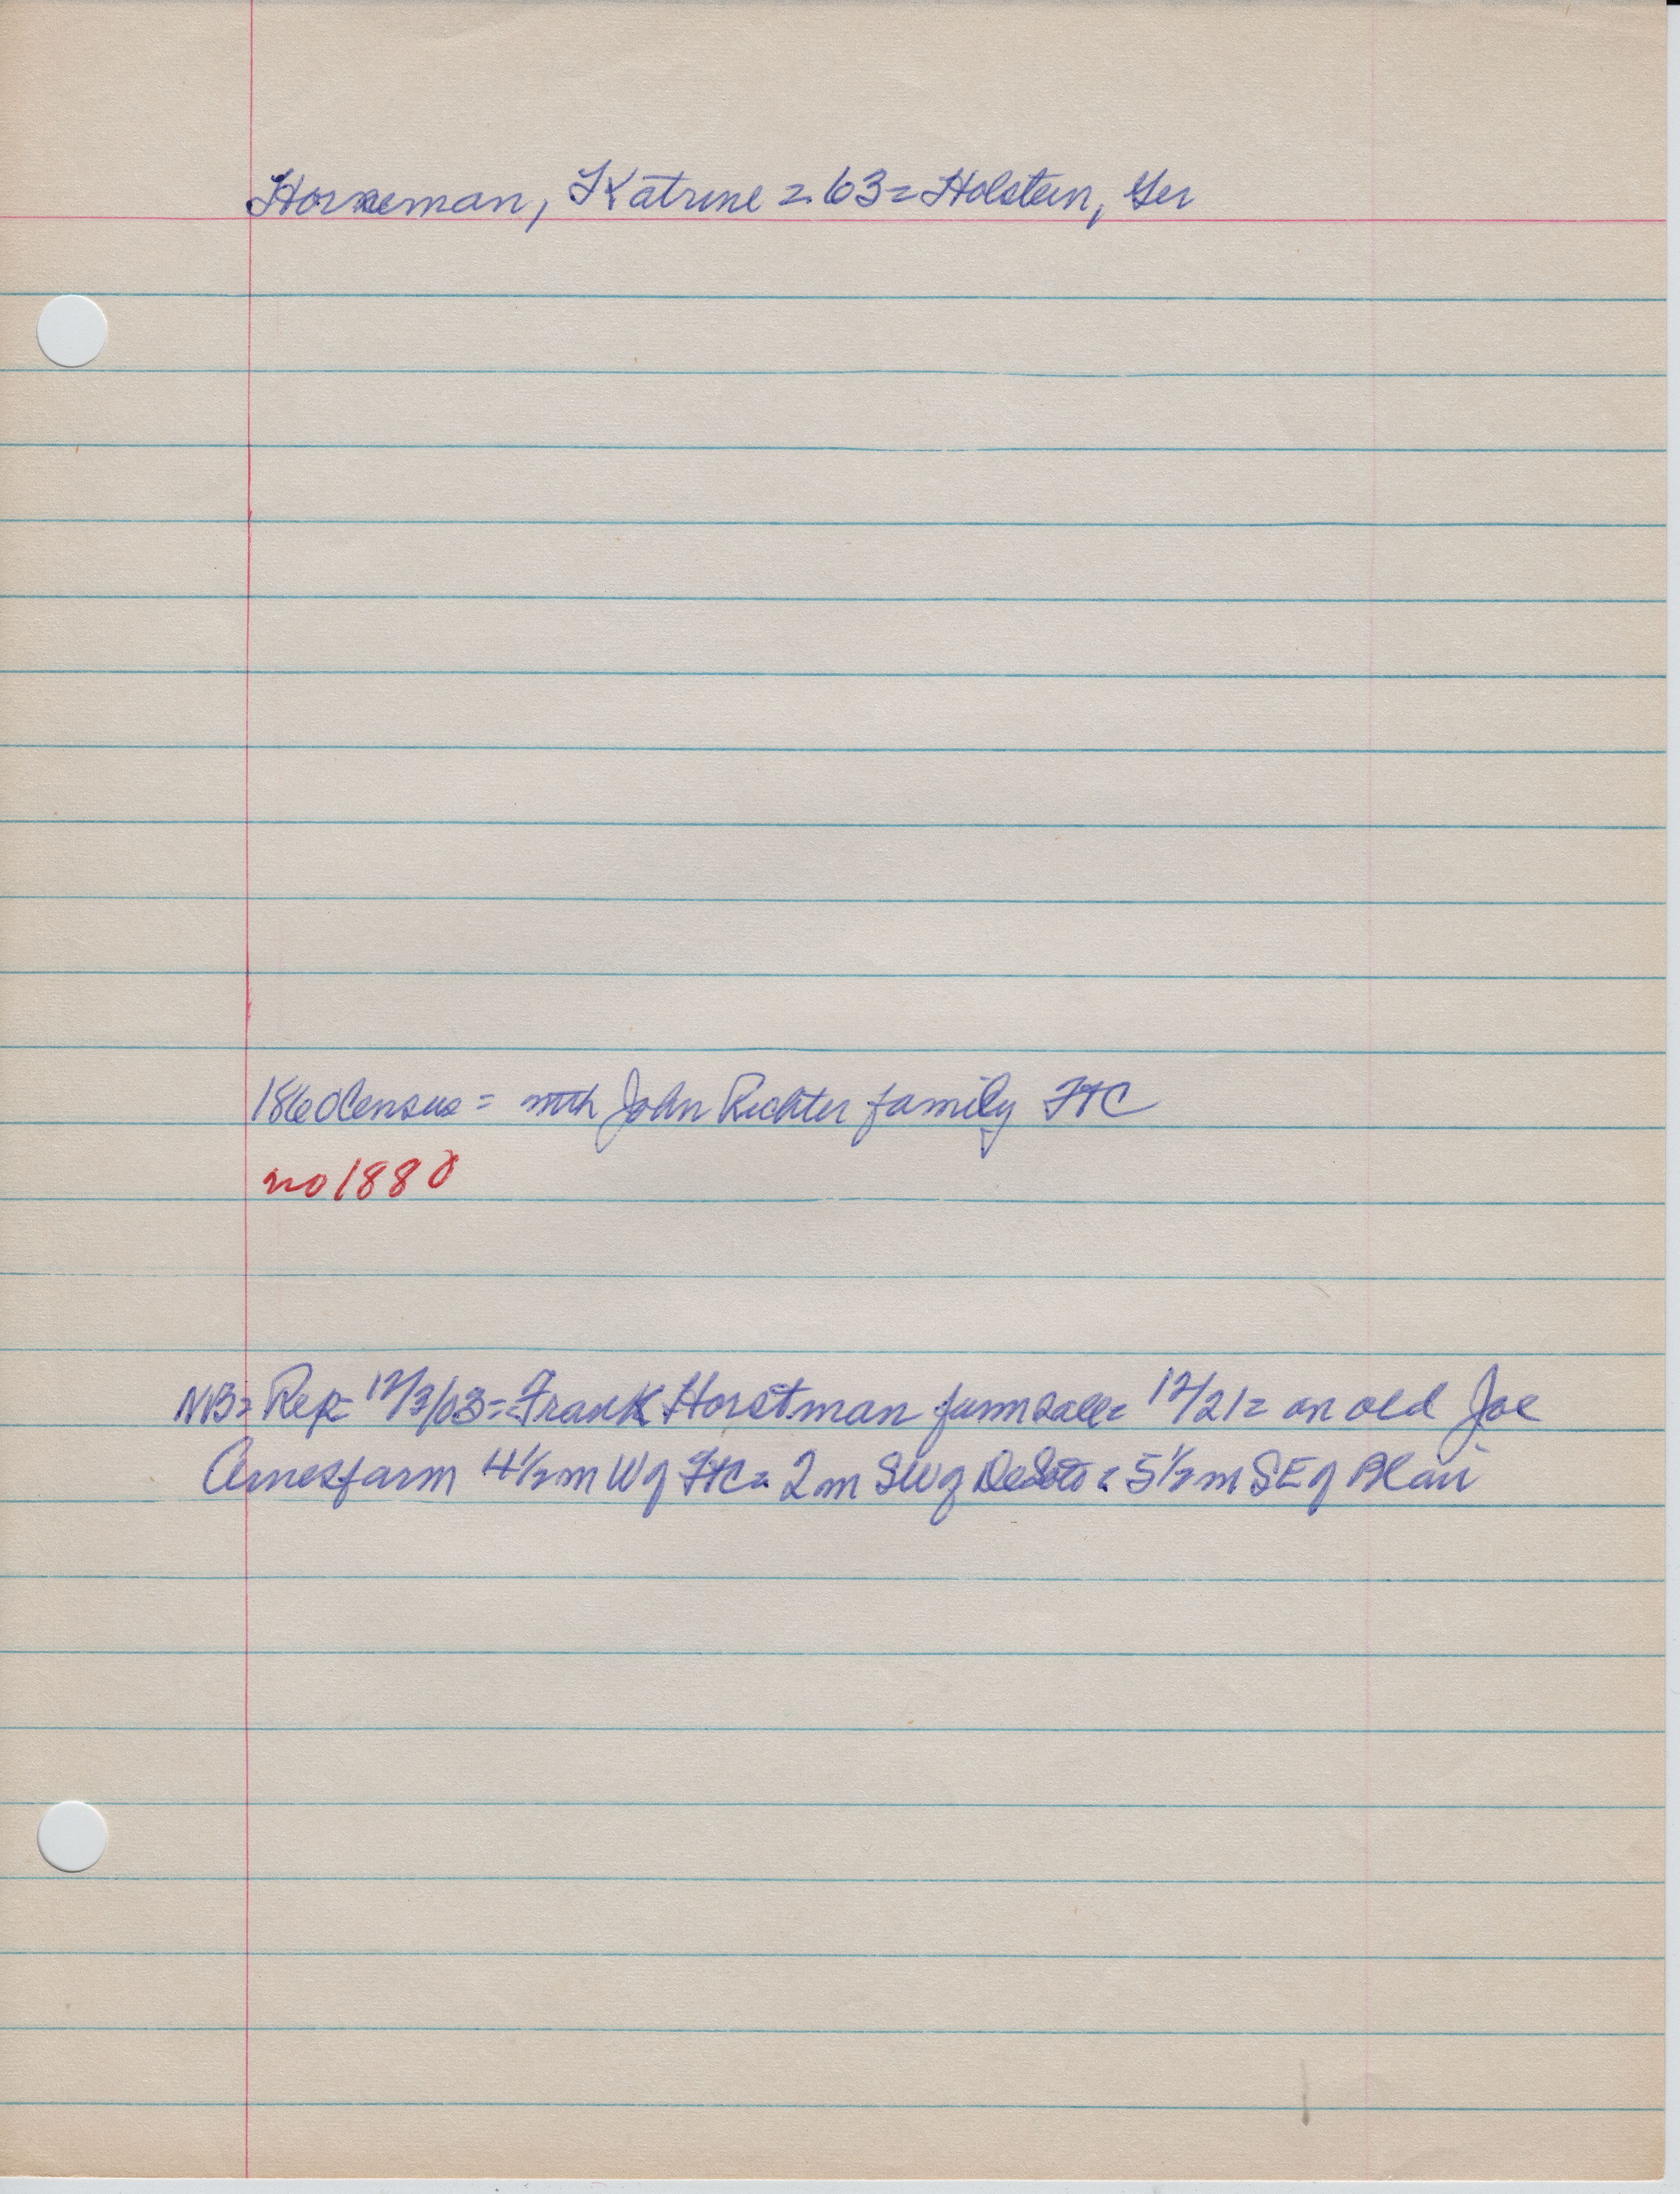 Horneman, Katrine = 63 = Holstein, Ger
1860 Census = with John Richter family FTC
no 1880
NB = Rep = 12/3/03 = Frank Horstman farm sale = 12/21 = on old Joe
Arnes farm 4 1/2 m W of FtC = 2 m SW of DeSoto = 5 1/2 m SE of Blair